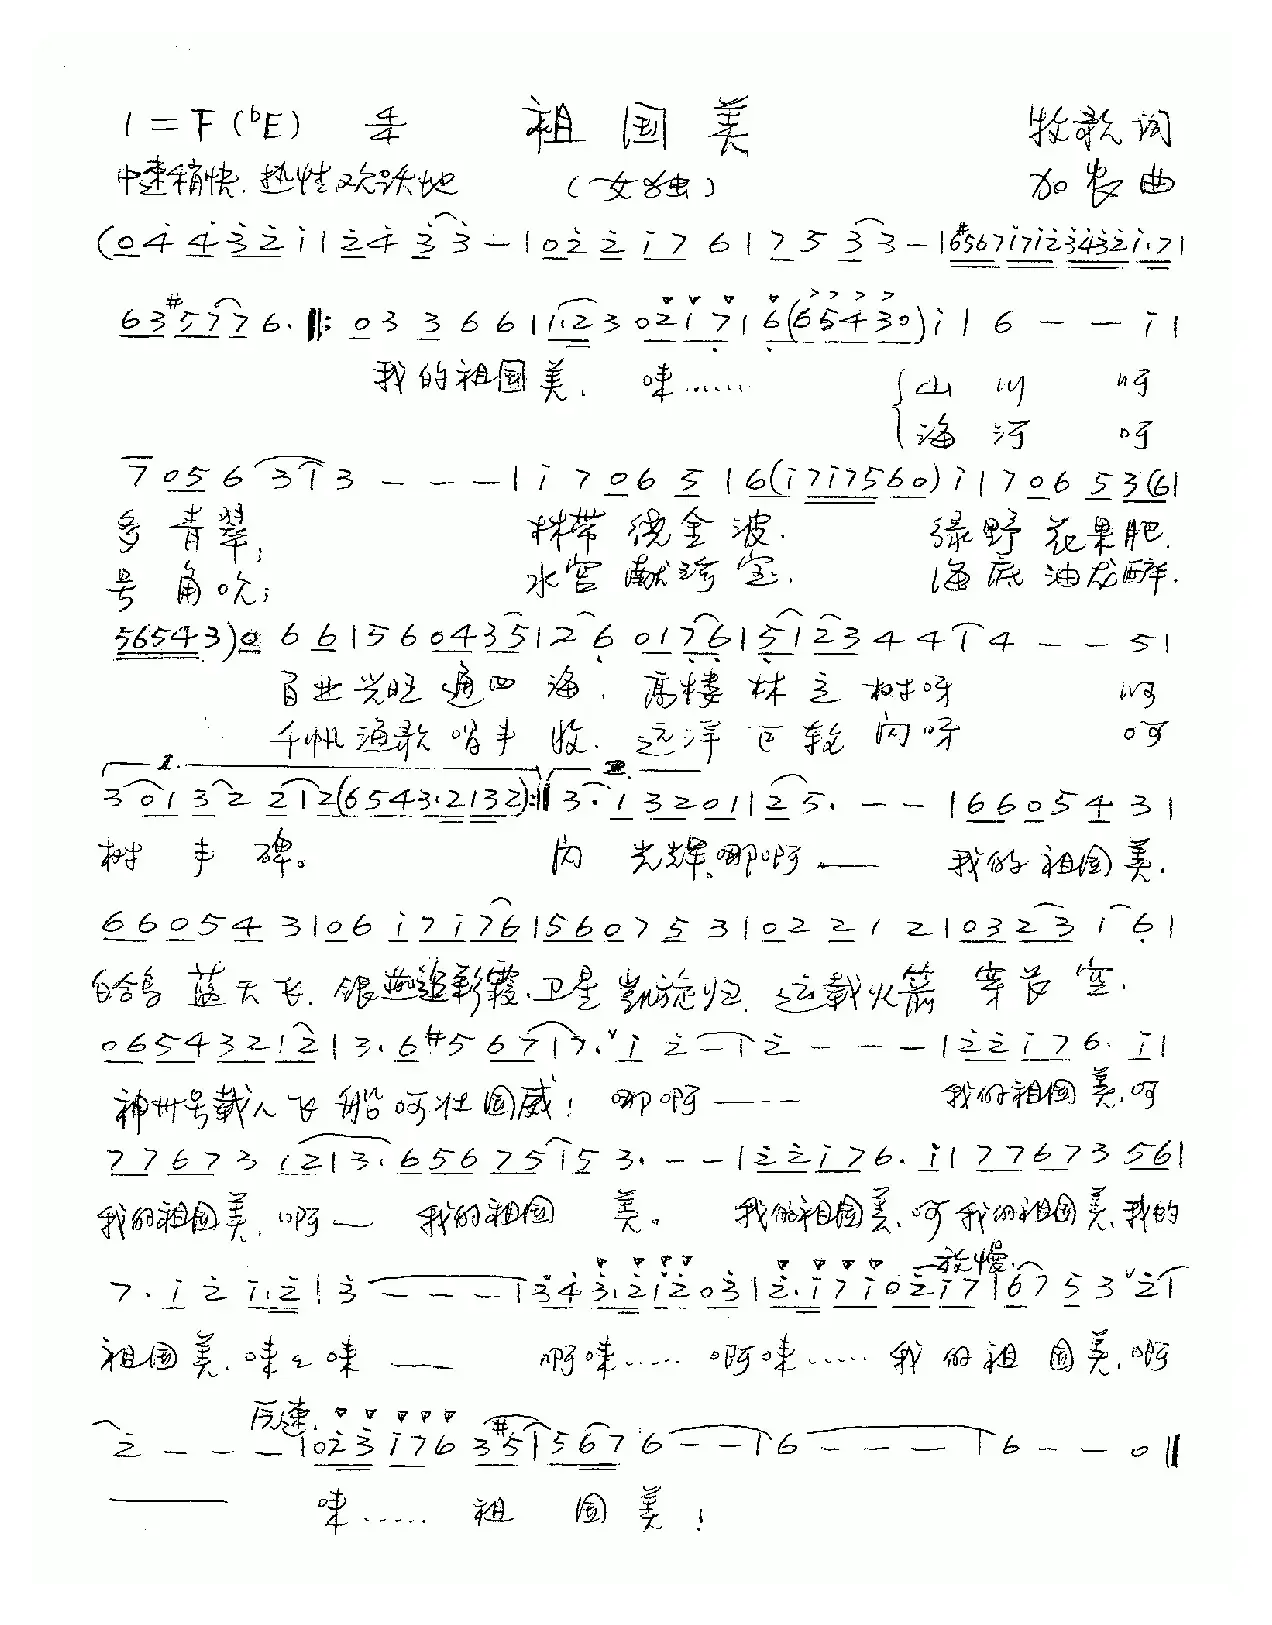 1=F(ᵇE) 4/4 祖国美 牧歌词
中速稍快.热性欢跃地 (女独) 加农曲
(04 4 3 2 1|2 4 3 3 -|02 2 1 7 6|7 5 3 3 -|#6567 1712 3432 1·7|
63 #57 7 6· ‖: 03 3 6 6|1·2 3 0217|6(65430)1|6 - - 1|
我的祖国美. 唻…… 山川呵
海河呵
7 05 6 3|3 - - -|1 7 06 5|6(1717560)1|7 06 5 3(6|
多青翠; 林带绕金波. 绿野花果肥.
号角吹; 水宫献 宝. 海底油龙醉.
56543)0 6 6|5 6 04 35|2 6 01 76|5 1 2 3 4 4|4 - - 5|
百业兴旺通四海. 高楼林立树呀 呵
千帆渔歌哨丰收. 远洋巨轮闪呀 呵
1. 2.
3 01 3 2 2|2(6543·2132):‖3· 1 3 2 01|2 5· - -|66 05 4 3|
树丰碑。 闪光辉.哪啊—— 我的祖国美.
66 05 4 3|06 17 1 76|56 07 5 3|02 2 1 2|03 2 3 1 6|
白鸽蓝天飞.银燕追彩霞.卫星凯旋归.运载火箭穿长空.
065432 12|3· 6 #5 6 7|7· 1 2 -|2 - - -|2 2 1 7 6· 1|
神州号载人飞船呵壮国威! 哪啊—— 我的祖国美.呵
77673 12|3· 65675|5 3· - -|2 2 1 7 6· 1|77673 56|
我的祖国美.啊— 我的祖国美。 我的祖国美.呵我的祖国美.我的
放慢
7· 1 2 1·2|3 - - -|34 3·212 03|2·1710217|6 7 5 3 2|
祖国美.唻唻— 啊唻…… 啊唻……我的祖国美.啊
后速.
2 - - -|023 176 3#5|567 6 - -|6 - - -|6 - - 0‖
唻…… 祖国美!